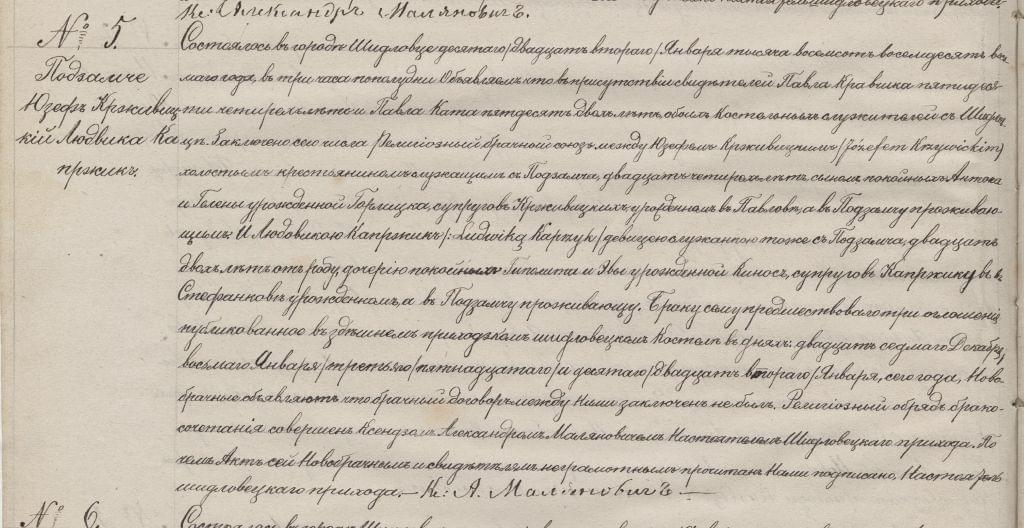 Кс: Александръ Маляновичъ.
№ 5.
Подзамче
Юзефъ Крживиц
кій Людвика Ка
пржикъ.
Состоялось въ городѣ Шидловце десятаго /двадцать втораго/ Января тысяча восемсотъ восемдесятъ вось-
маго года, въ три часа пополудни. Объявляемъ что въ присутствіи свидѣтелей Павла Кравчика пятидеся-
ти четырехъ лѣтъ и Павла Ката пятдесятъ двохъ лѣтъ, обоихъ костельныхъ служителей съ Шидлов-
ца. Заключено сего числа Религіозный брачный союзъ между Юзефомъ Крживицкимъ /Józefem Krzywickim/
холостымъ крестьяниномъ служащимъ съ Подзамча, двадцать четырехъ лѣтъ сыномъ покойныхъ Антона
и Гелены урожденной Горлицка, супруговъ Крживицкихъ урожденномъ въ Павловѣ, а въ Подзамчу проживаю-
щимъ: И Людовикою Капржикъ /: Ludwiką Kaprzyk / девицею служанкою тоже съ Подзамча, двадцать
двохъ лѣтъ отъ роду, дочерію покойныхъ Гиполита и Эвы урожденной Киносъ, супруговъ Капржикъ въ
Стефанковѣ урожденномъ, а въ Подзамчу проживающу. Браку сему предшествовало три оглашенія
публикованное въ здѣшнемъ приходскомъ шидловецкомъ Костелѣ въ дняхъ: двадцать седмаго Декабря,
восьмаго Января /третьяго /пятнадцатаго/ и десятаго /двадцать втораго/ Января, сего года, Ново-
брачные объявляютъ что брачный договоръ между Ними заключенъ не былъ. Религіозный обрядъ брако-
сочетанія совершенъ Ксендзомъ Александромъ Маляновичемъ Настоятелемъ Шидловецкаго прихода. По
чемъ Актъ сей Новобрачнымъ и свидѣтелямъ неграмотнымъ прочитанъ Нами подписано, Настоятель
шидловецкаго прихода. — Кс: А. Маляновичъ —
№ 6.
Состоялось въ городѣ